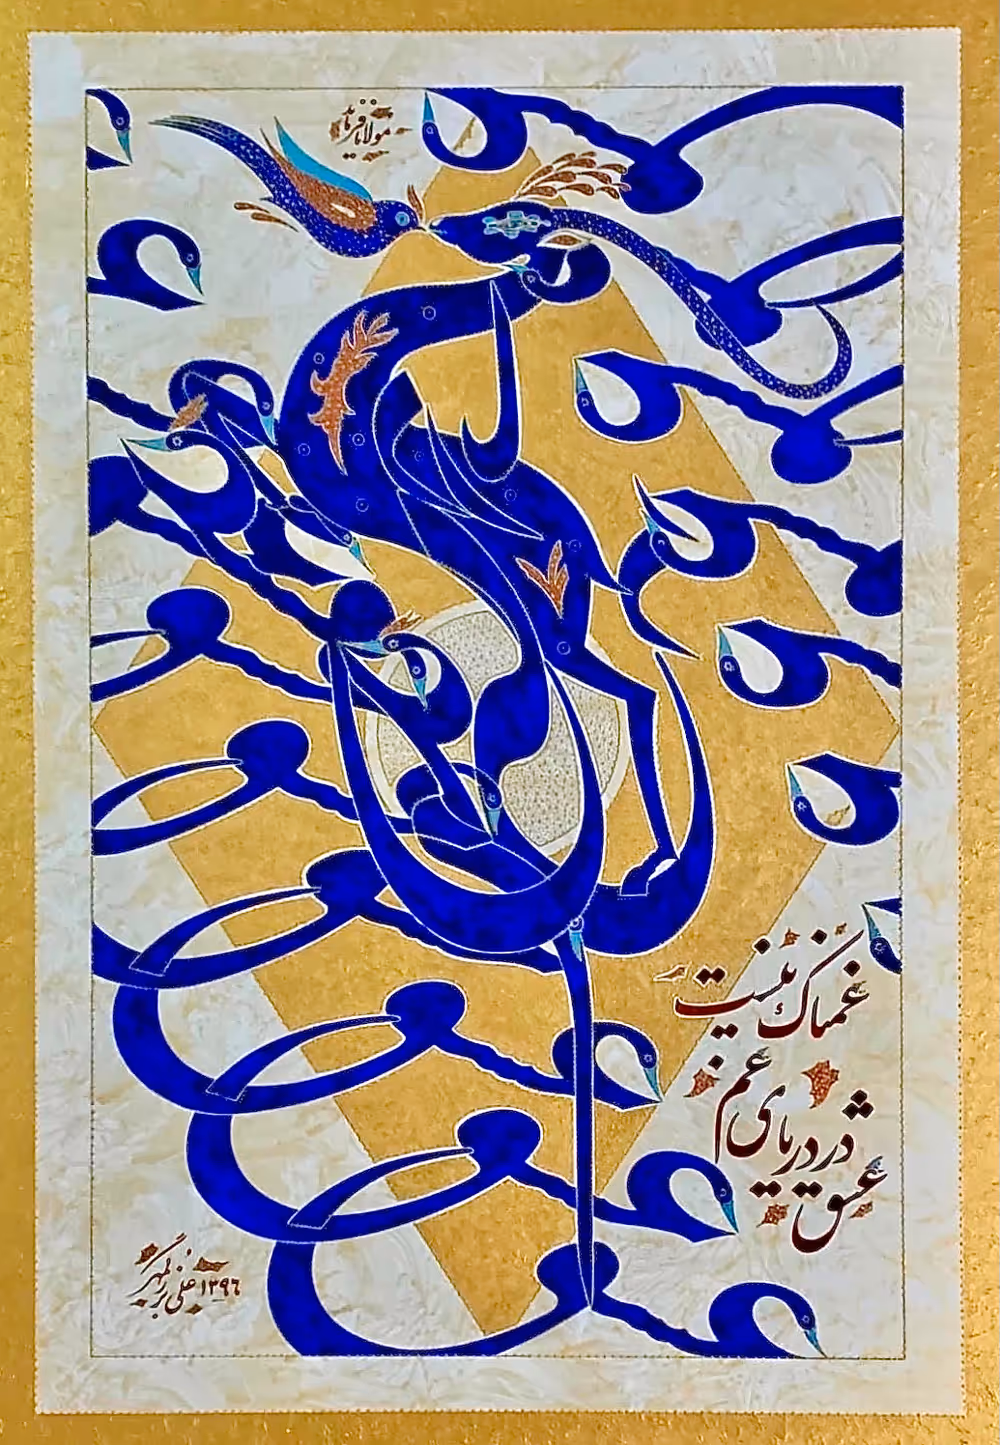 مولانا فرماید
عشق
در دریای غم
غمناک نیست
علی بزرگمهر ۱۳۹۶